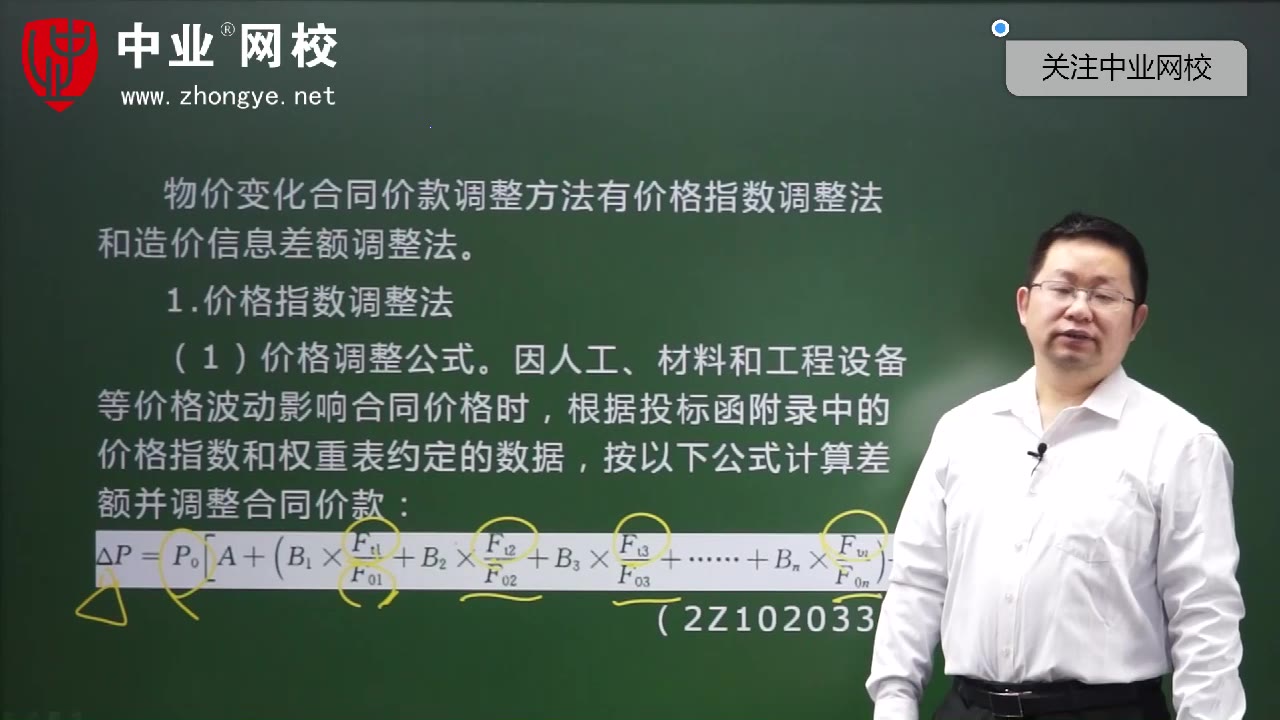 中业®网校
www.zhongye.net
关注中业网校
物价变化合同价款调整方法有价格指数调整法
和造价信息差额调整法。
1.价格指数调整法
（1）价格调整公式。因人工、材料和工程设备
等价格波动影响合同价格时，根据投标函附录中的
价格指数和权重表约定的数据，按以下公式计算差
额并调整合同价款：
ΔP = P₀[A + (B₁ × Ft1/F01 + B₂ × Ft2/F02 + B₃ × Ft3/F03 + …… + Bn × Ftn/F0n) -
（2Z102033